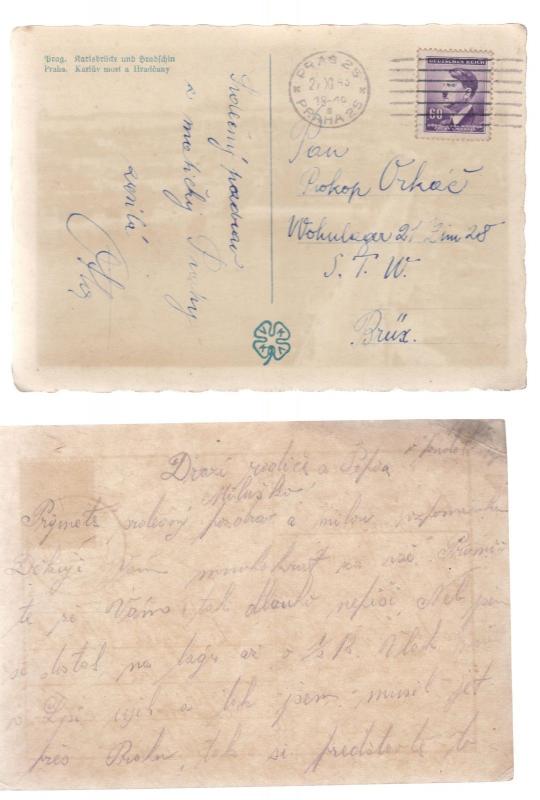 Prag. Karlsbrücke und Hradschin
Praha. Karlův most a Hradčany
Srdečný pozdrav
z matičky Prahy
zasílá
PRAG 25
18-19
PRAHA 25
DEUTSCHES REICH
60
Pan
Prokop Orkáč
Wohnlager 21 Zim 28
S. T. W.
Brüx.
Drazí rodiče a Pepo
Miluško
Přijměte pozdrav a milou vzpomínku
Děkuji Vám mnohokrát za vše. Promiň
te že Vám tak dlouho nepíši, Než jsem
se dostal na lágr až o Vlak
a tak jsem musil jet
přes Prahu, tak si představte to